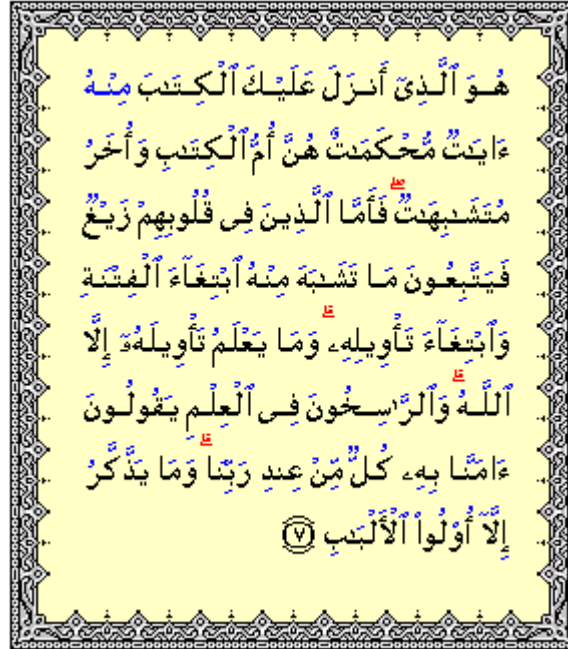 هُوَ ٱلَّذِىٓ أَنزَلَ عَلَيْكَ ٱلْكِتَـٰبَ مِنْهُ
ءَايَـٰتٌ مُّحْكَمَـٰتٌ هُنَّ أُمُّ ٱلْكِتَـٰبِ وَأُخَرُ
مُتَشَـٰبِهَـٰتٌ ۖ فَأَمَّا ٱلَّذِينَ فِى قُلُوبِهِمْ زَيْغٌ
فَيَتَّبِعُونَ مَا تَشَـٰبَهَ مِنْهُ ٱبْتِغَآءَ ٱلْفِتْنَةِ
وَٱبْتِغَآءَ تَأْوِيلِهِۦ ۗ وَمَا يَعْلَمُ تَأْوِيلَهُۥٓ إِلَّا
ٱللَّهُ ۗ وَٱلرَّٰسِخُونَ فِى ٱلْعِلْمِ يَقُولُونَ
ءَامَنَّا بِهِۦ كُلٌّ مِّنْ عِندِ رَبِّنَا ۗ وَمَا يَذَّكَّرُ
إِلَّآ أُو۟لُوا۟ ٱلْأَلْبَـٰبِ ﴿٧﴾